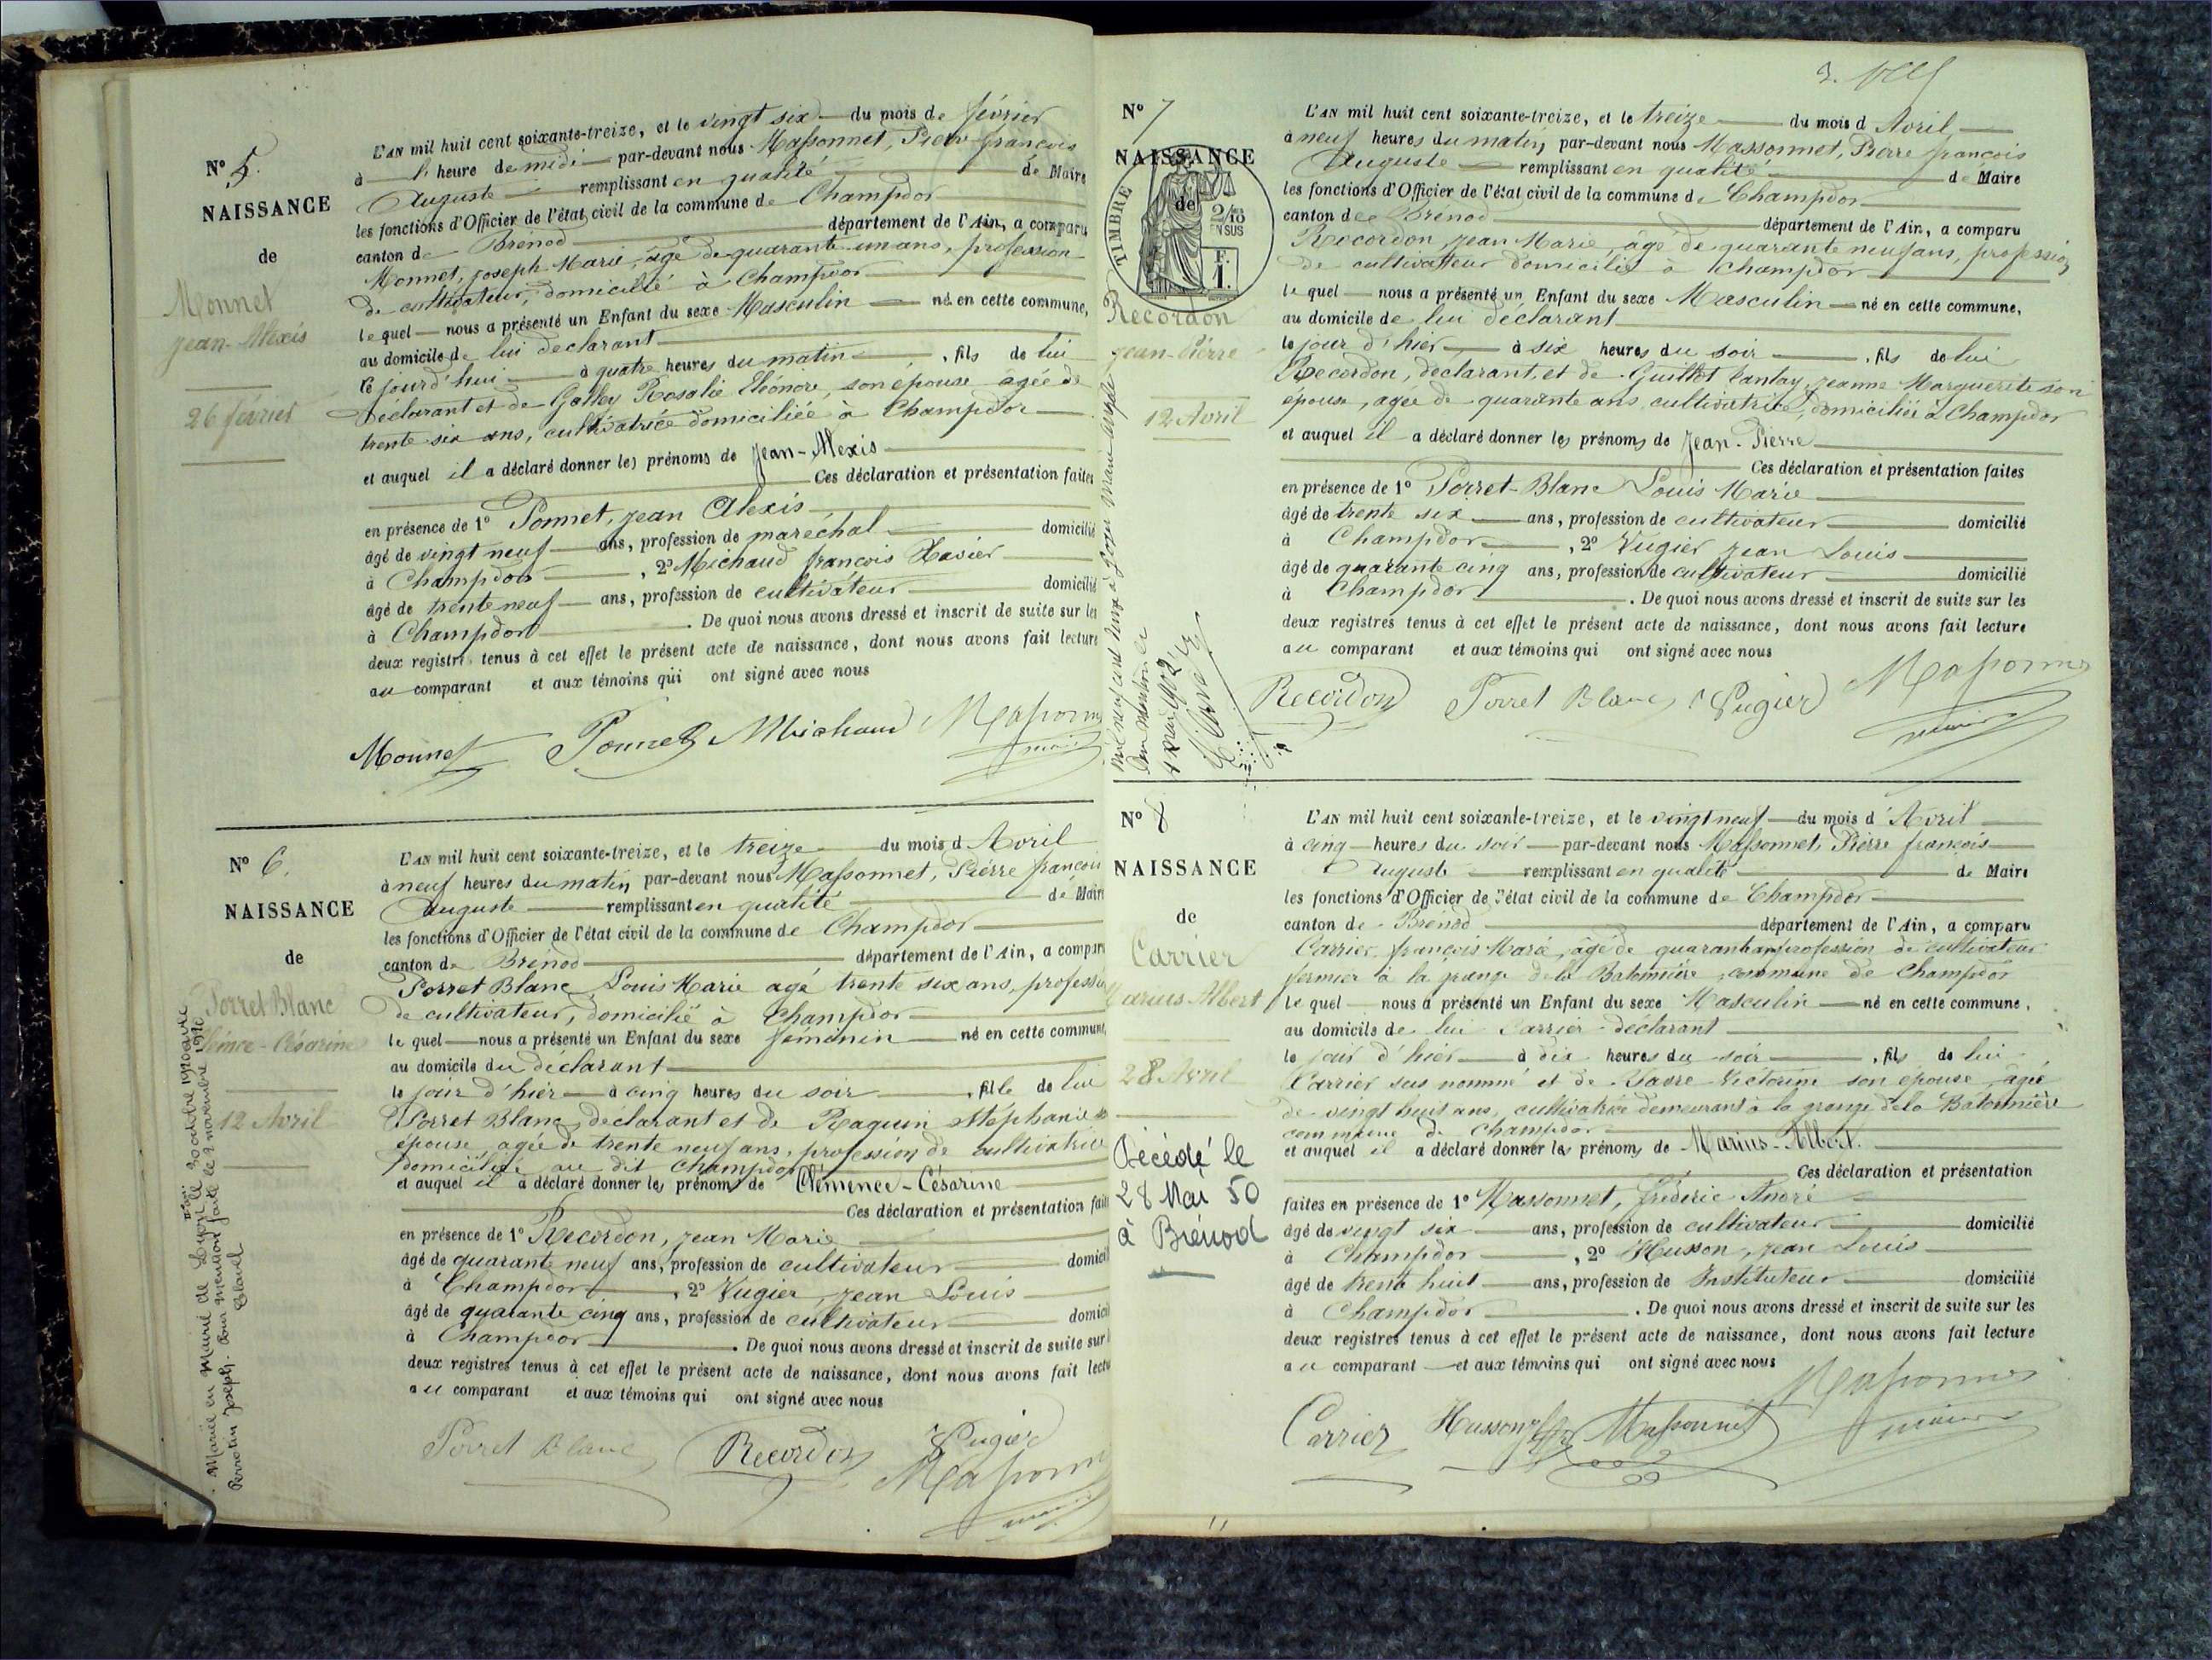 N° 5.
NAISSANCE
de
Monnet
Jean-Alexis
26 février
L'AN mil huit cent soixante-treize, et le vingt six du mois de février
à l' heure de midi par-devant nous Massonnet, Pierre françois
Auguste remplissant en qualité de Maire
les fonctions d'Officier de l'état civil de la commune de Champdor
canton de Brénod département de l'Ain, a comparu
Monnet, Joseph Marie, âgé de quarante un ans, profession
de cultivateur, domicilié à Champdor
le quel nous a présenté un Enfant du sexe Masculin né en cette commune,
au domicile de lui déclarant
le jourd'hui à quatre heures du matin, fils de lui
déclarant et de Rosalie Eléonore, son épouse âgée de
trente six ans, cultivatrice domiciliée à Champdor
et auquel il a déclaré donner les prénoms de Jean-Alexis
Ces déclaration et présentation faites
en présence de 1° Ponnet, Jean Alexis
âgé de vingt neuf ans, profession de maréchal domicilié
à Champdor, 2° Michaud françois Xavier
âgé de trente neuf ans, profession de cultivateur domicilié
à Champdor. De quoi nous avons dressé et inscrit de suite sur les
deux registres tenus à cet effet le présent acte de naissance, dont nous avons fait lecture
au comparant et aux témoins qui ont signé avec nous
Monnet Ponnet Michaud Massonnet
maire
N° 6.
NAISSANCE
de
Porret Blanc
Clémence-Césarine
12 Avril
Mariée en Mairie de Lyon le 30 octobre 1920 avec
Perrotin Joseph. Pour mention faite le 2 novembre 1920
L'AN mil huit cent soixante-treize, et le treize du mois d Avril
à neuf heures du matin, par-devant nous Massonnet, Pierre françois
Auguste remplissant en qualité de Maire
les fonctions d'Officier de l'état civil de la commune de Champdor
canton de Brénod département de l'Ain, a comparu
Porret Blanc, Louis Marie agé trente six ans, profession
de cultivateur, domicilié à Champdor
le quel nous a présenté un Enfant du sexe féminin né en cette commune,
au domicile du déclarant
le jour d'hier à cinq heures du soir, fille de lui
Porret Blanc, déclarant et de Raguin Stéphanie
épouse, agée de trente neuf ans, profession de cultivatrice
domiciliée au dit Champdor
et auquel il a déclaré donner les prénoms de Clémence-Césarine
Ces déclaration et présentation faites
en présence de 1° Recordon, Jean Marie
âgé de quarante neuf ans, profession de cultivateur domicilié
à Champdor, 2° Pugier, Jean Louis
âgé de quarante cinq ans, profession de cultivateur domicilié
à Champdor. De quoi nous avons dressé et inscrit de suite sur
deux registres tenus à cet effet le présent acte de naissance, dont nous avons fait lecture
au comparant et aux témoins qui ont signé avec nous
Porret Blanc Recordon Pugier
Massonnet
N° 7
NAISSANCE
de
TIMBRE
2/10 EN SUS
F. 1.
Recordon
Jean-Pierre
12 Avril
L'AN mil huit cent soixante-treize, et le treize du mois d Avril
à neuf heures du matin, par-devant nous Massonnet, Pierre françois
Auguste remplissant en qualité de Maire
les fonctions d'Officier de l'état civil de la commune de Champdor
canton de Brénod département de l'Ain, a comparu
Recordon, Jean Marie, âgé de quarante neuf ans, profession
de cultivateur domicilié à Champdor
le quel nous a présenté un Enfant du sexe Masculin né en cette commune,
au domicile de lui déclarant
le jour d'hier à six heures du soir, fils de lui
Recordon, déclarant, et de Guillot Jeanne Marguerite son
épouse, agée de quarante ans, cultivatrice, domiciliée à Champdor
et auquel il a déclaré donner les prénoms de Jean-Pierre
Ces déclaration et présentation faites
en présence de 1° Porret-Blanc Louis Marie
âgé de trente six ans, profession de cultivateur domicilié
à Champdor, 2° Pugier Jean Louis
âgé de quarante cinq ans, profession de cultivateur domicilié
à Champdor. De quoi nous avons dressé et inscrit de suite sur les
deux registres tenus à cet effet le présent acte de naissance, dont nous avons fait lecture
au comparant et aux témoins qui ont signé avec nous
Recordon Porret Blanc Pugier Massonnet
maire
N° 8
NAISSANCE
de
Carrier
Marius Albert
28 Avril
Décédé le
28 Mai 50
à Brénod
L'AN mil huit cent soixante-treize, et le vingt neuf du mois d'Avril
à cinq heures du soir par-devant nous Massonnet, Pierre françois
Auguste remplissant en qualité de Maire
les fonctions d'Officier de l'état civil de la commune de Champdor
canton de Brénod département de l'Ain, a comparu
Carrier, françois Marie, âgé de quarante ans profession de cultivateur
fermier à la grange de la Batonnière, commune de Champdor
le quel nous a présenté un Enfant du sexe Masculin né en cette commune,
au domicile de lui Carrier déclarant
le jour d'hier à dix heures du soir, fils de lui
Carrier sus nommé et de Victorine son épouse, agée
de vingt huit ans, cultivatrice demeurant à la grange de la Batonnière
commune de Champdor
et auquel il a déclaré donner les prénoms de Marius-Albert.
Ces déclaration et présentation
faites en présence de 1° Massonnet, fréderic André
âgé de vingt six ans, profession de cultivateur domicilié
à Champdor, 2° Husson, Jean Louis
âgé de trente huit ans, profession de Instituteur domicilié
à Champdor. De quoi nous avons dressé et inscrit de suite sur les
deux registres tenus à cet effet le présent acte de naissance, dont nous avons fait lecture
au comparant et aux témoins qui ont signé avec nous
Carrier Husson Massonnet Massonnet
maire